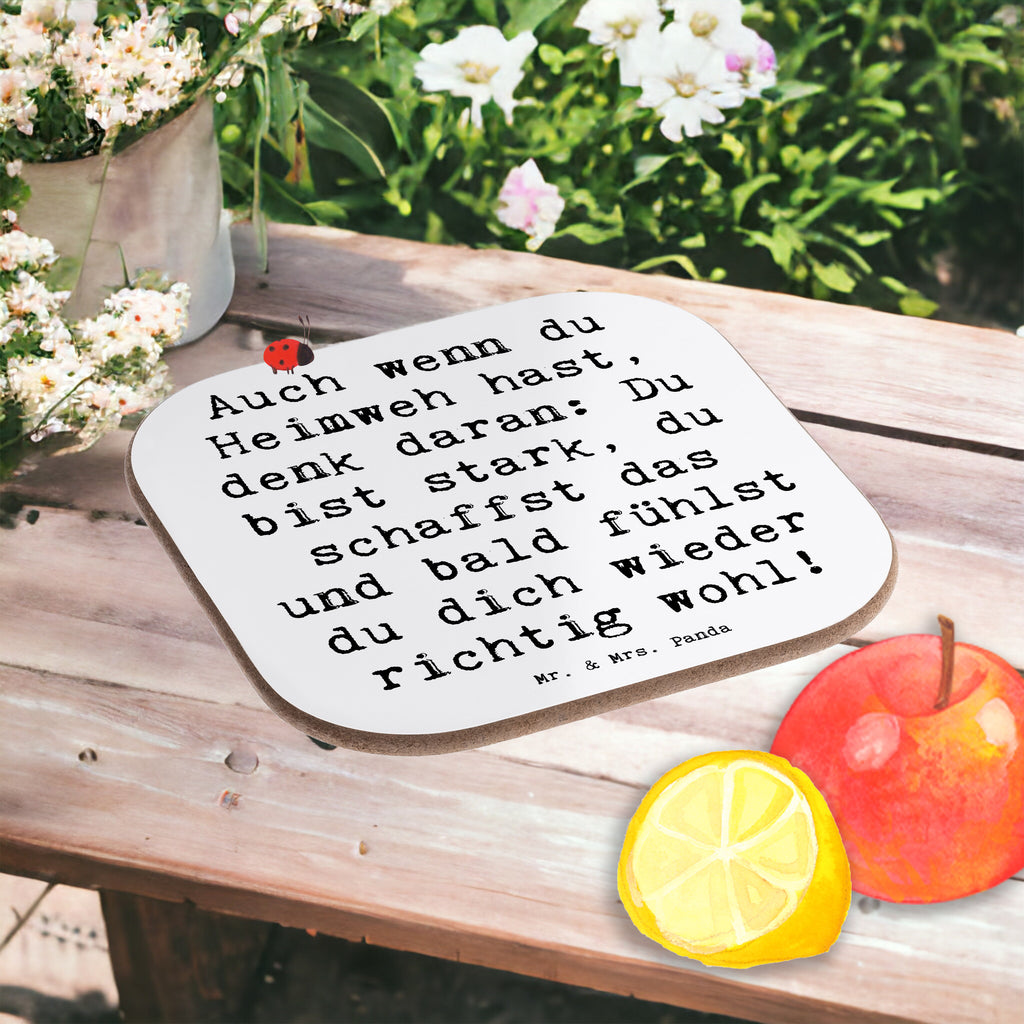 Auch wenn du
Heimweh hast,
denk daran: Du
bist stark, du
schaffst das
und bald fühlst
du dich wieder
richtig wohl!
Mr. & Mrs. Panda